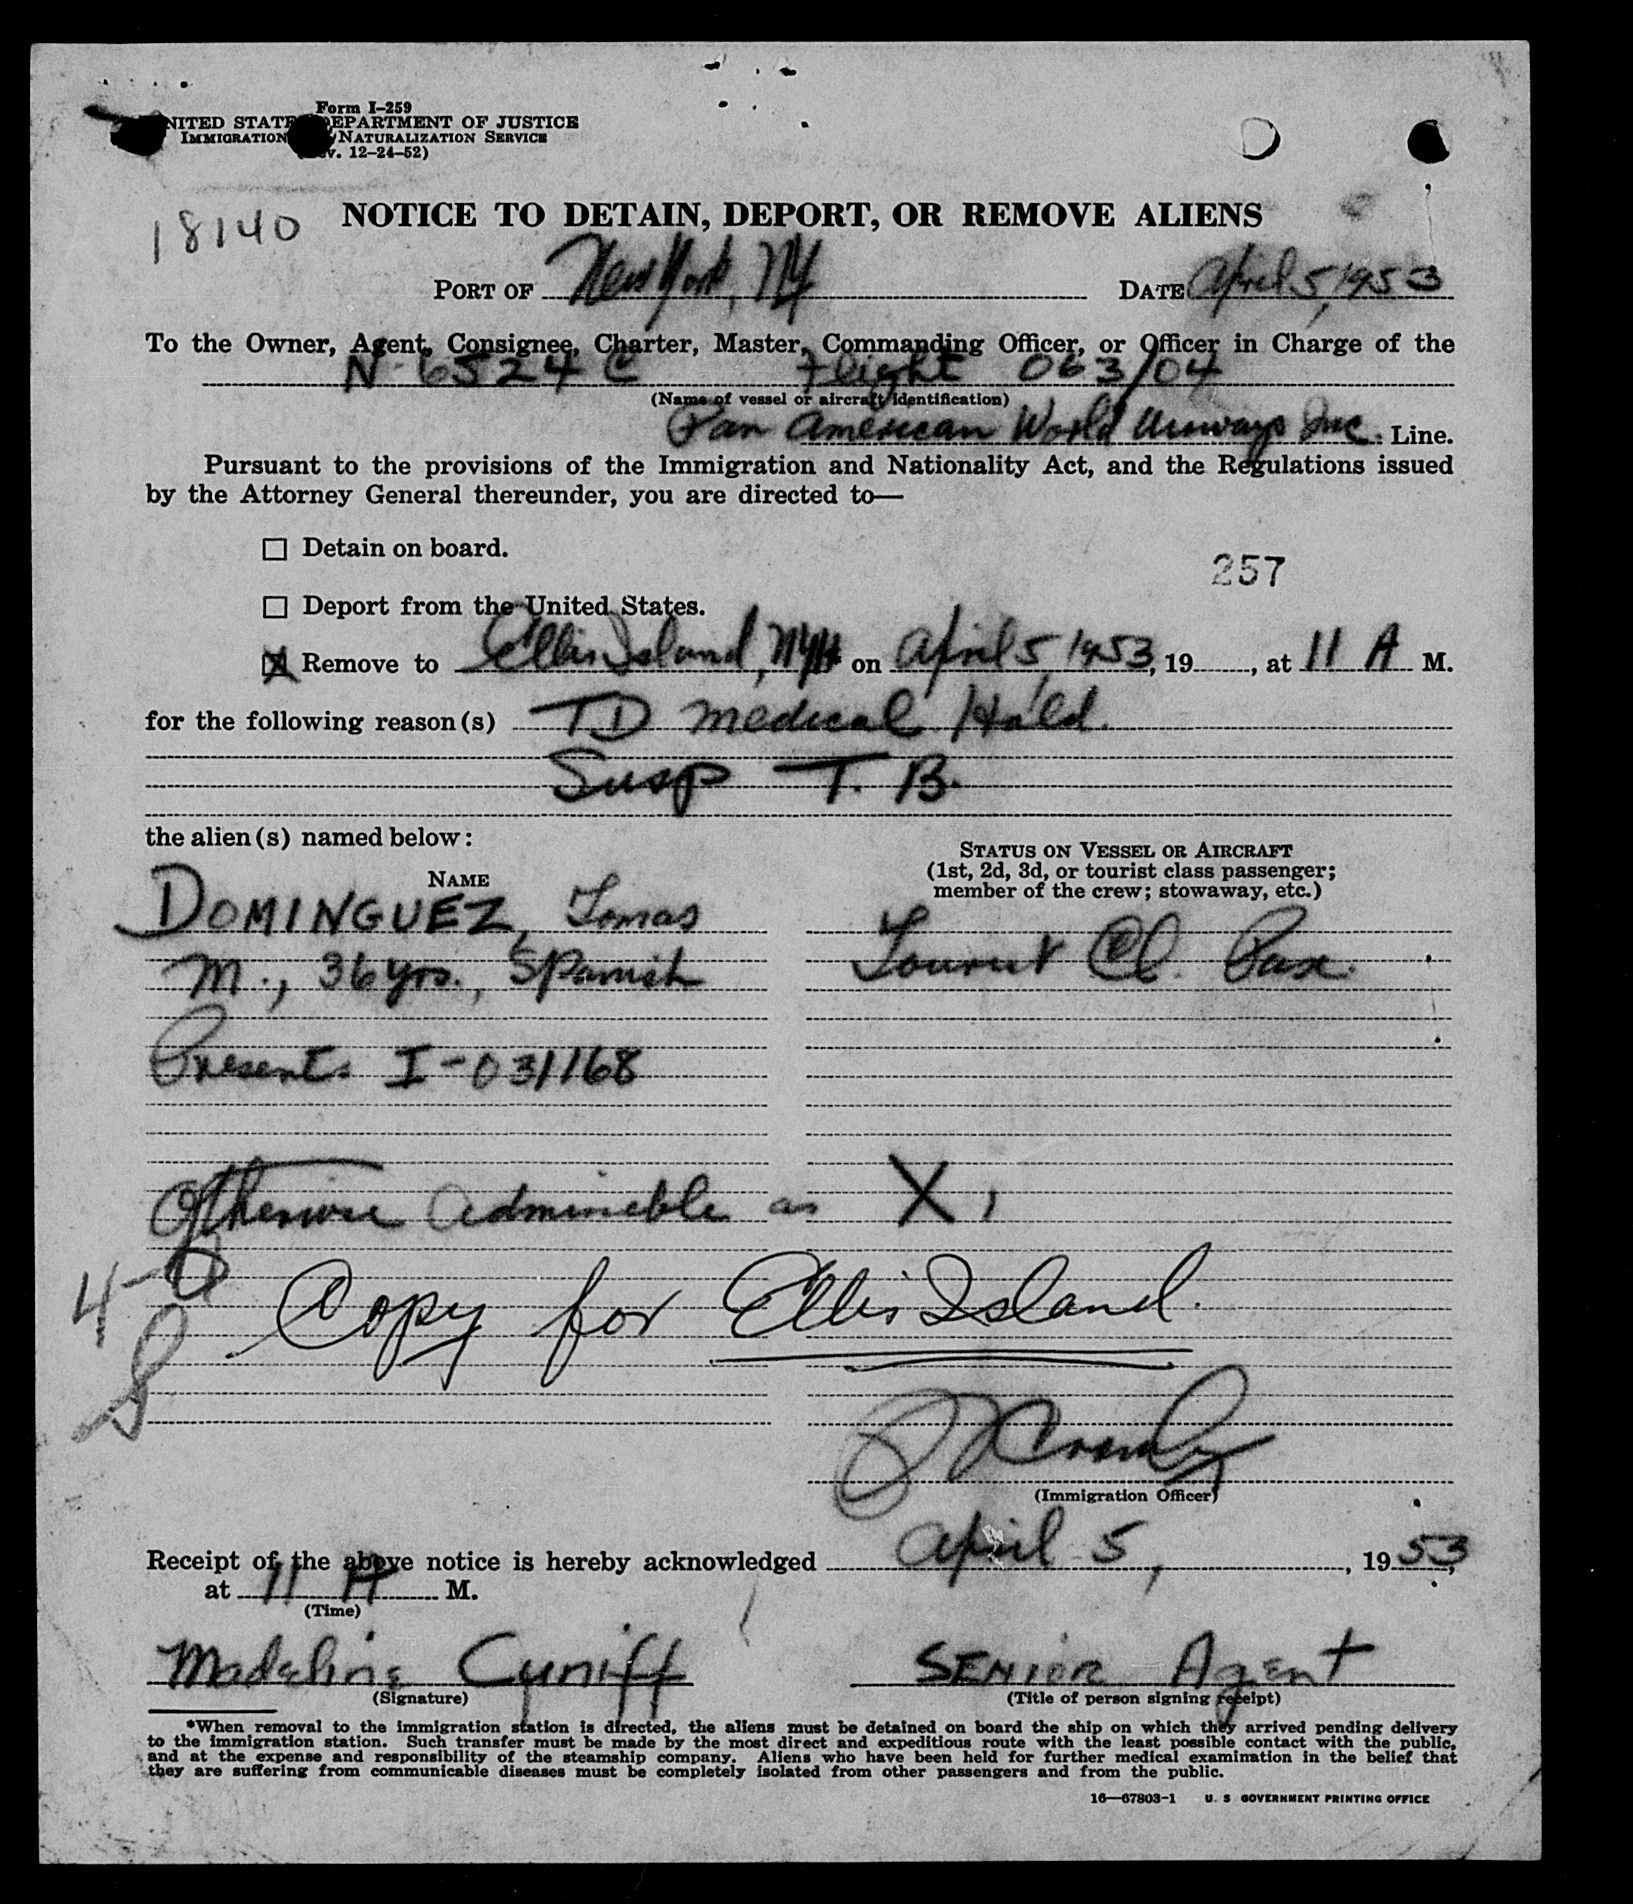 Form I-259
UNITED STATES DEPARTMENT OF JUSTICE
IMMIGRATION NATURALIZATION SERVICE
v. 12-24-52)
18140
NOTICE TO DETAIN, DEPORT, OR REMOVE ALIENS
PORT OF New York, NY DATE April 5, 1953
To the Owner, Agent, Consignee, Charter, Master, Commanding Officer, or Officer in Charge of the
N-6524C Flight 063/04
(Name of vessel or aircraft identification)
Pan American World Airways Inc. Line.
Pursuant to the provisions of the Immigration and Nationality Act, and the Regulations issued
by the Attorney General thereunder, you are directed to—
☐ Detain on board.
257
☐ Deport from the United States.
☒ Remove to Ellis Island, NYH on April 5, 1953, 19......, at 11 A M.
for the following reason(s) TD Medical Hold.
Susp T. B.
the alien(s) named below:
STATUS ON VESSEL OR AIRCRAFT
(1st, 2d, 3d, or tourist class passenger;
member of the crew; stowaway, etc.)
NAME
DOMINGUEZ, Tomas
M., 36 yrs., Spanish
Tourist Cl. Pax.
Presents I-031168
Otherwise admissible as X1
4-
Copy for Ellis Island.
(Immigration Officer)
Receipt of the above notice is hereby acknowledged April 5, , 1953,
at 11 A M.
(Time)
Madeline Cuniff SENIOR Agent
(Signature) (Title of person signing receipt)
*When removal to the immigration station is directed, the aliens must be detained on board the ship on which they arrived pending delivery
to the immigration station. Such transfer must be made by the most direct and expeditious route with the least possible contact with the public,
and at the expense and responsibility of the steamship company. Aliens who have been held for further medical examination in the belief that
they are suffering from communicable diseases must be completely isolated from other passengers and from the public.
16—67803-1 U. S GOVERNMENT PRINTING OFFICE